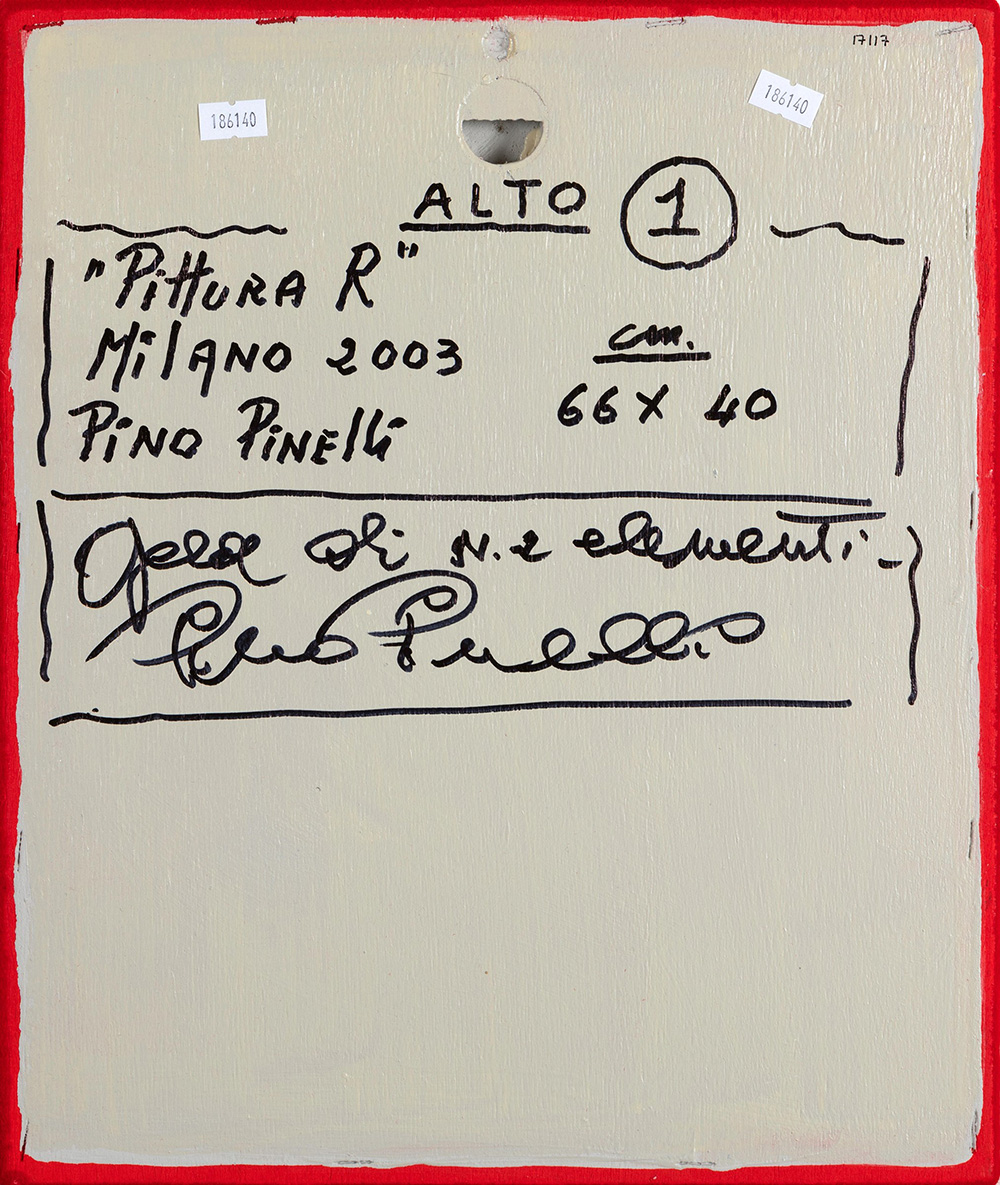 17117
186140
186140
ALTO 1
"PittURA R"
MilANO 2003
cm.
PiNO PiNElli
66 X 40
Opera di N. 2 elementi-
Pino Pinelli